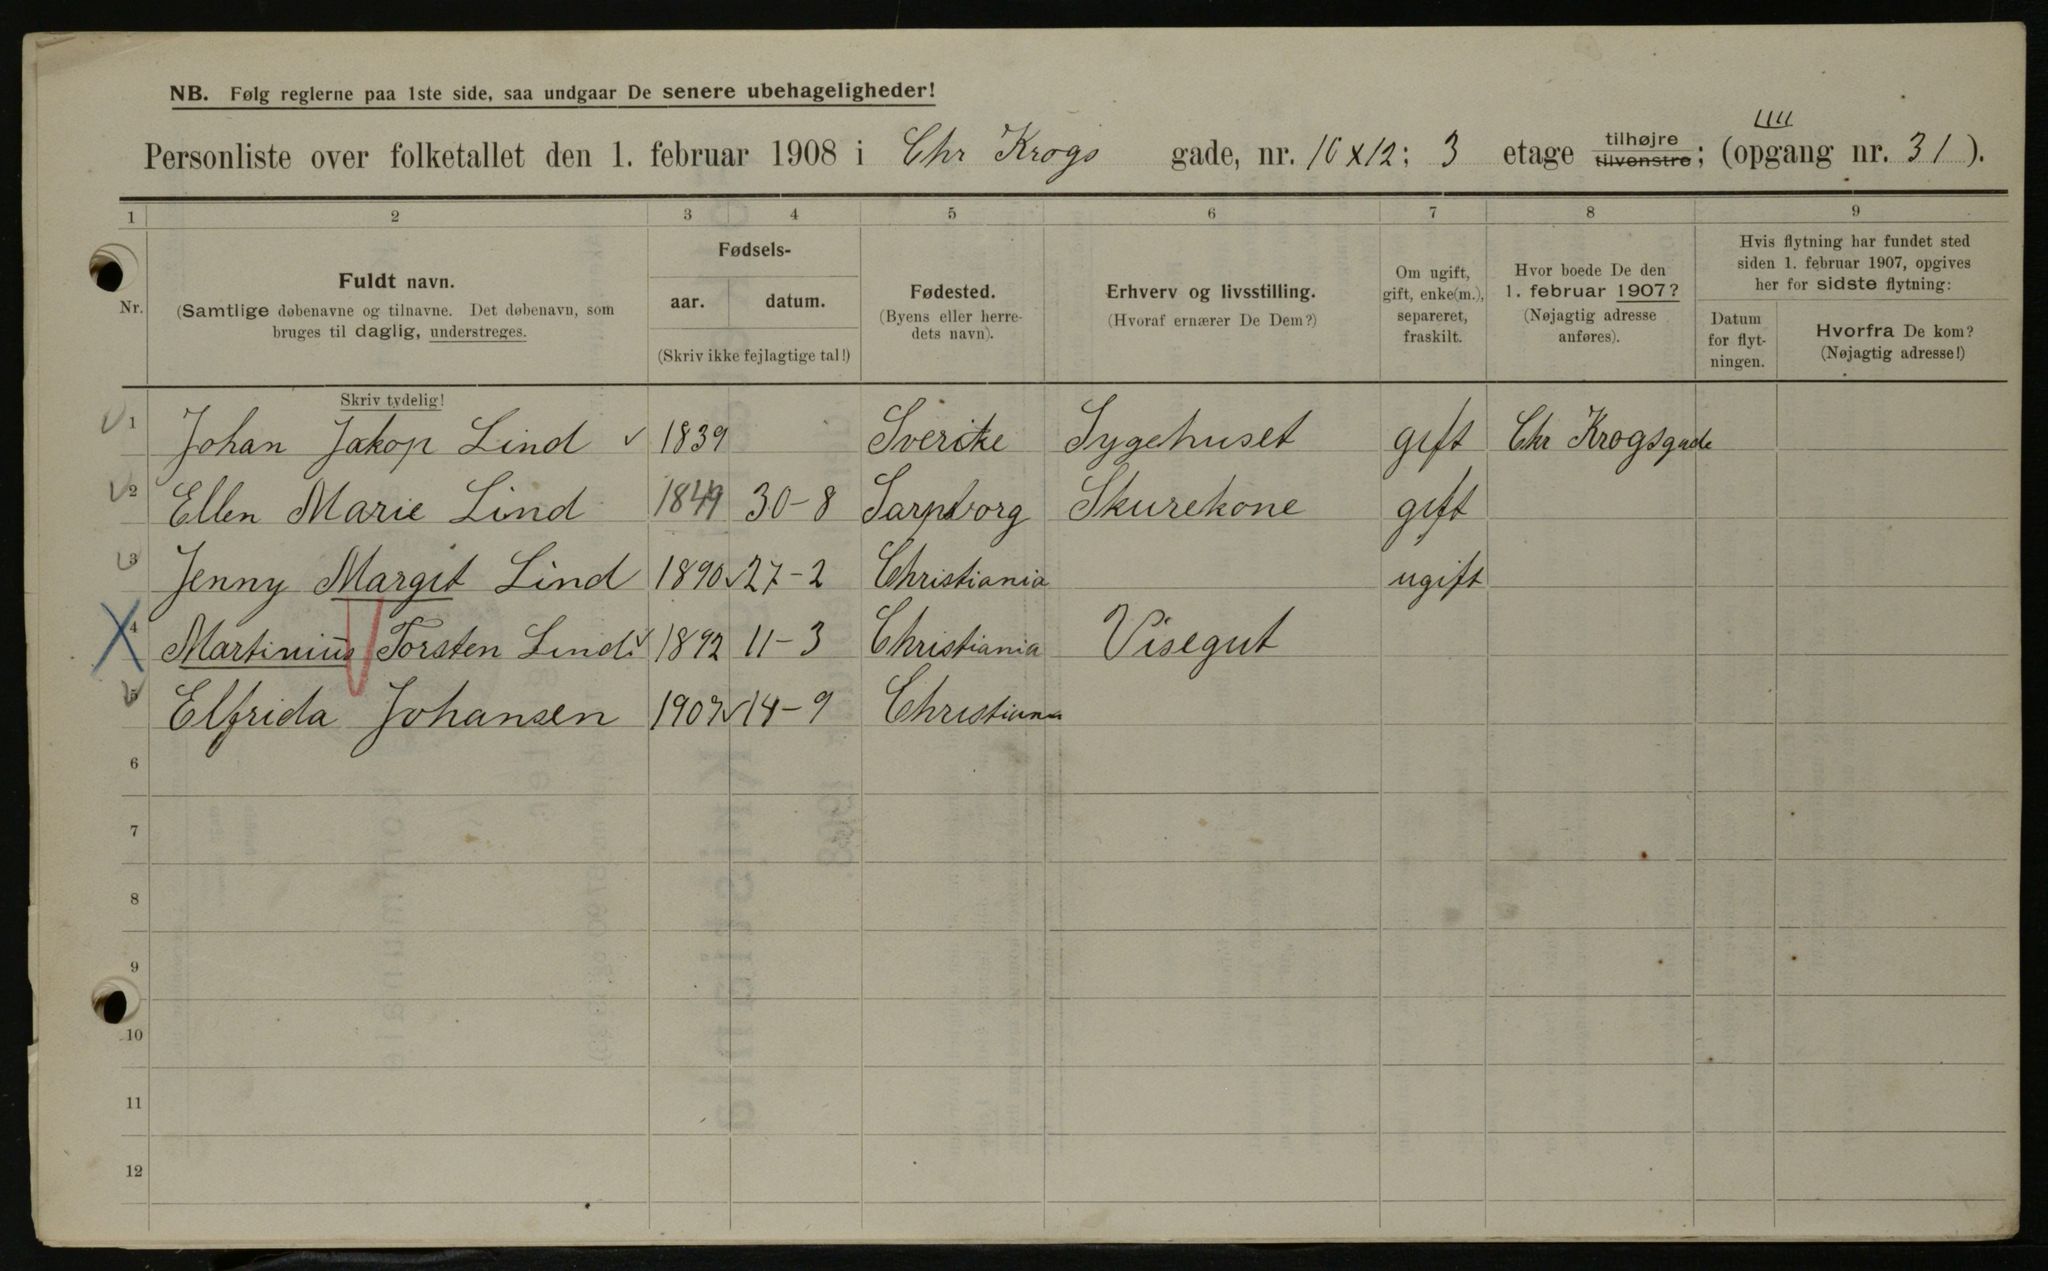 NB. Følg reglerne paa 1ste side, saa undgaar De senere ubehageligheder!
Personliste over folketallet den 1. februar 1908 i Chr Krogs gade, nr. 10 x 12; 3 etage tilhøjre tilvenstre; (opgang nr. 31).
1 2 3 4 5 6 7 8 9
Nr.
Fuldt navn.
(Samtlige døbenavne og tilnavne. Det døbenavn, som
bruges til daglig, understreges.
Fødsels-
aar. datum.
(Skriv ikke fejlagtige tal!)
Fødested.
(Byens eller herre-
dets navn).
Erhverv og livsstilling.
(Hvoraf ernærer De Dem?)
Om ugift,
gift, enke(m.),
separeret,
fraskilt.
Hvor boede De den
1. februar 1907?
(Nøjagtig adresse
anføres).
Hvis flytning har fundet sted
siden 1. februar 1907, opgives
her for sidste flytning:
Datum
for flyt-
ningen.
Hvorfra De kom?
(Nøjagtig adresse!)
Skriv tydelig!
1 Johan Jakop Lind 1839 Sverike Sygehuset gift Chr Krogsgade
2 Ellen Marie Lind 1849 30-8 Sarpborg Skurekone gift
3 Jenny Margit Lind 1890 27-2 Christiania ugift
4 Martinius Torsten Lind 1892 11-3 Christiania Visegut
5 Elfrida Johansen 1907 14-9 Christiana
6
7
8
9
10
11
12